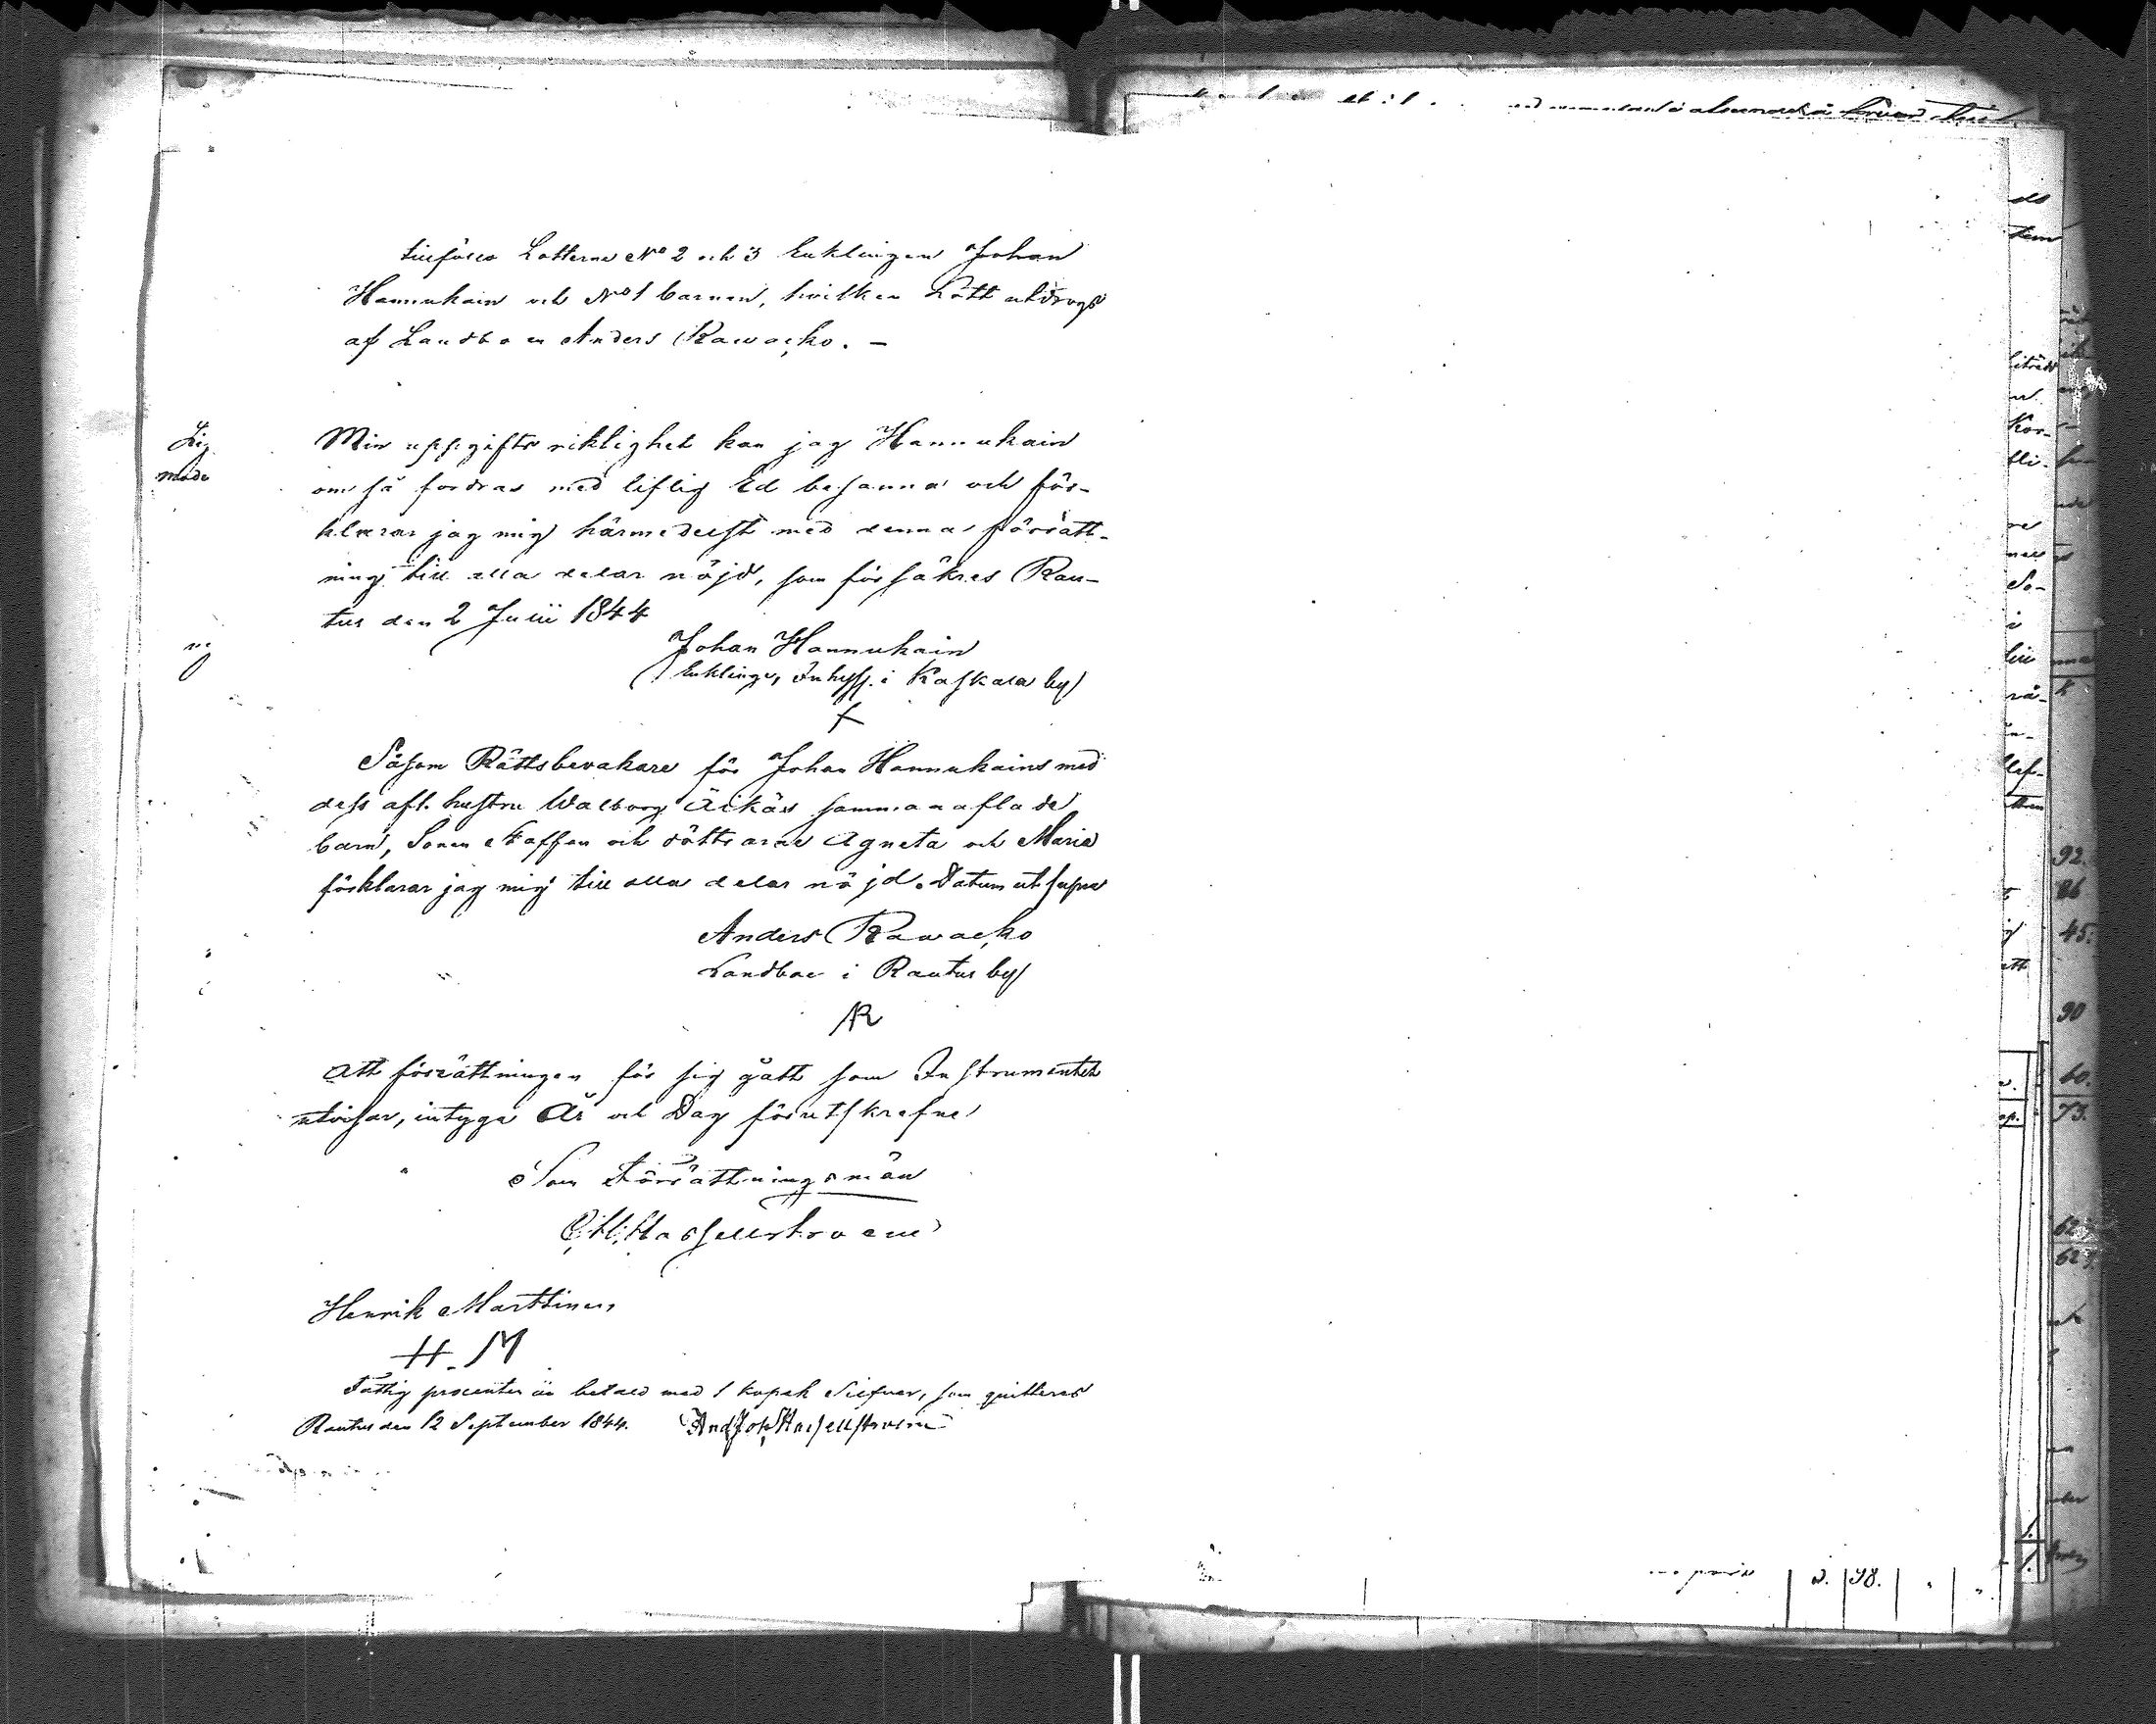 tillföllo Lotterne No 2 och 3 Enklingen Johan
Hannukain och No 1 barnen, hvilken Lott utdrogs
af Landboen Anders Rawacko. —
Min uppgifts riktighet kan jag Hannukain
om så fordras med liflig Ed besanna och för-
klarar jag mig härmedelst med denna förrätt-
ning till alla delar nöjd, som försäkras Rau-
tus den 2 Julii 1844
Johan Hannukain
Enklinge, Inhyss. i Kaskala by
Såsom Rättsbevakare för Johan Hannukains med
dess afl. hustru Walborg Äikäs sammanaflade
barn, Sonen Staffan och döttrarne Agneta och Maria
förklarar jag mig till alla delar nöjd. Datum ut supra
Anders Rawacko
Landboe i Rautus by
AR
Att förrättningen för sig gått som Instrumentet
utvisar, intyga År och Dag förutskrefne
Som Förrättningsmän
Hassellstroem
Henrik Marttinen
H. M
Fattig procenten är betald med 1 kopek Silfver, som quitteras
Rautus den 12 September 1844. And Joh Hassellstroem